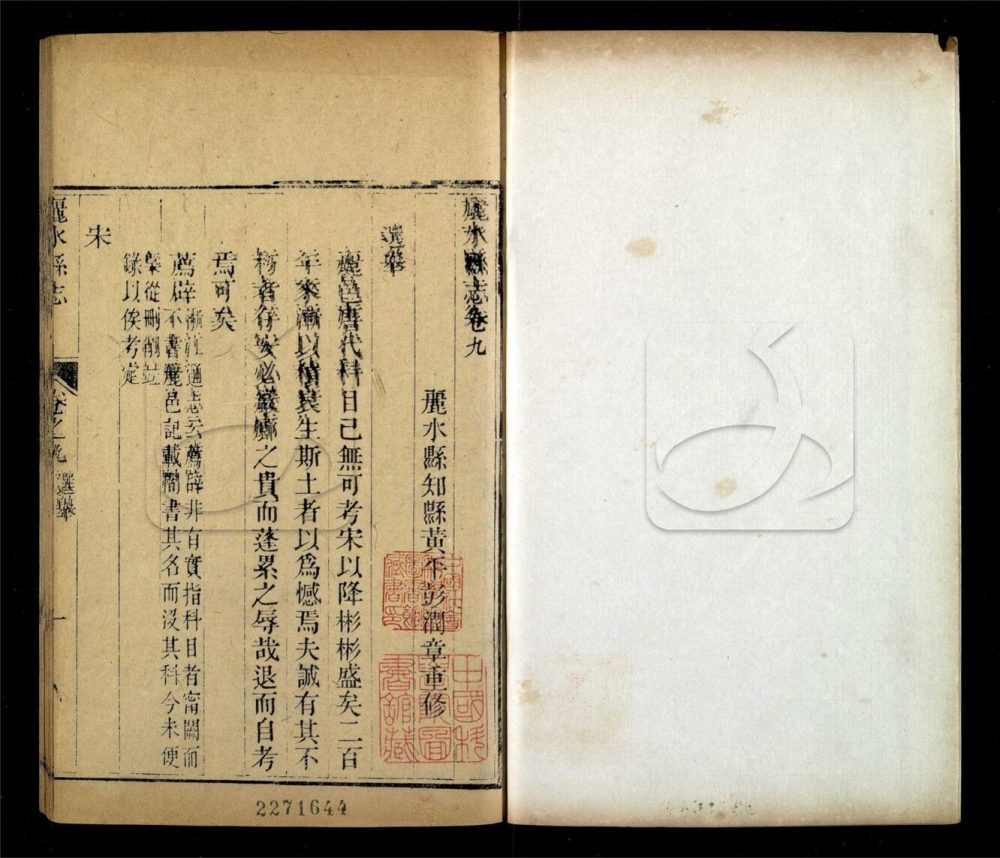 麗水縣志卷九
麗水縣知縣黃平彭潤章重修
選舉
麗邑唐代科目已無可考宋以降彬彬盛矣二百
年來漸以積衰生斯土者以為憾焉夫誠有其不
朽者存安必巖廊之貴而蓬累之辱哉退而自考
焉可矣
薦辟浙江通志云薦辟非有實指科目者甯闕而
不書麗邑記載間書其名而沒其科今未便
槩從刪削並
錄以俟考定
宋
麗水縣志
卷之九
選舉
一
2271644